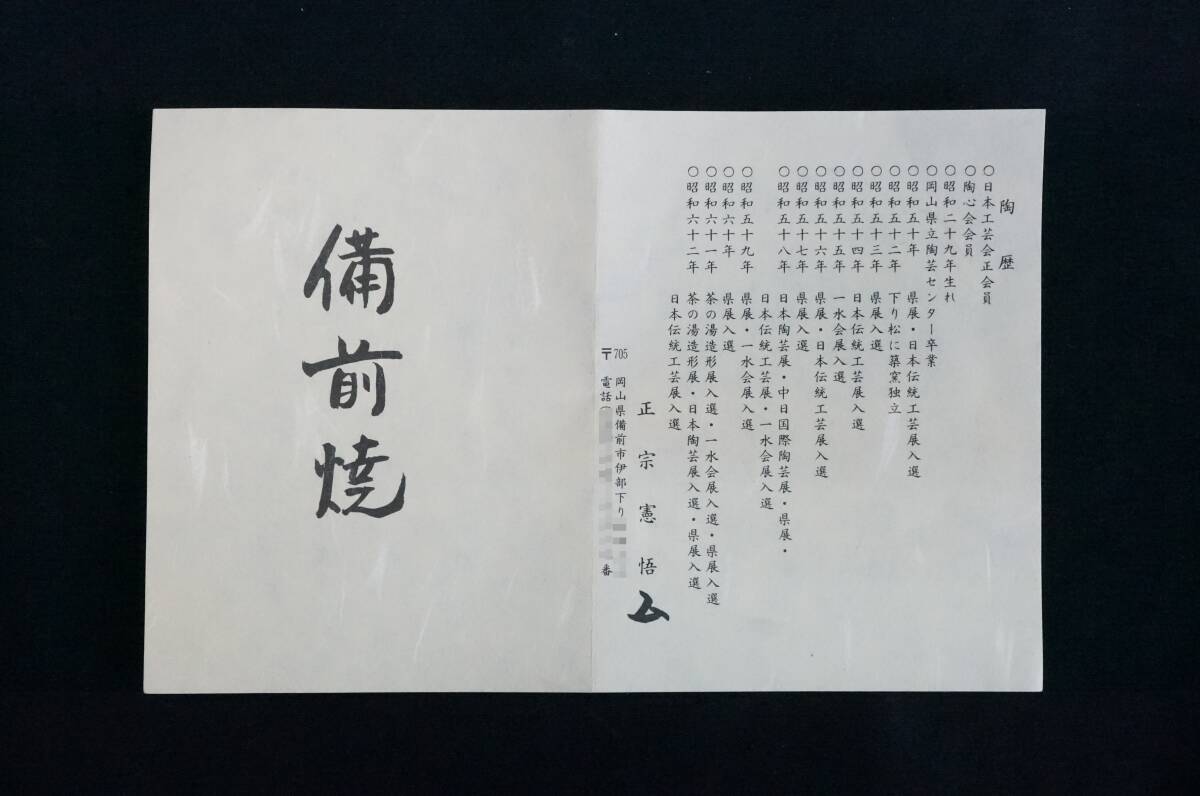 陶歴
〇日本工芸会正会員
〇陶心会会員
〇昭和二十九年生れ
〇岡山県立陶芸センター卒業
〇昭和五十年 県展・日本伝統工芸展入選
〇昭和五十二年 下り松に築窯独立
〇昭和五十三年 県展入選
〇昭和五十四年 日本伝統工芸展入選
〇昭和五十五年 一水会展入選
〇昭和五十六年 県展・日本伝統工芸展入選
〇昭和五十七年 県展入選
〇昭和五十八年 日本陶芸展・中日国際陶芸展・県展・
日本伝統工芸展・一水会展入選
〇昭和五十九年 県展・一水会展入選
〇昭和六十年 県展入選
〇昭和六十一年 茶の湯造形展入選・一水会展入選・県展入選
〇昭和六十二年 茶の湯造形展・日本陶芸展入選・県展入選
日本伝統工芸展入選
正宗憲悟
〒705 岡山県備前市伊部下り
電話 番
備前焼